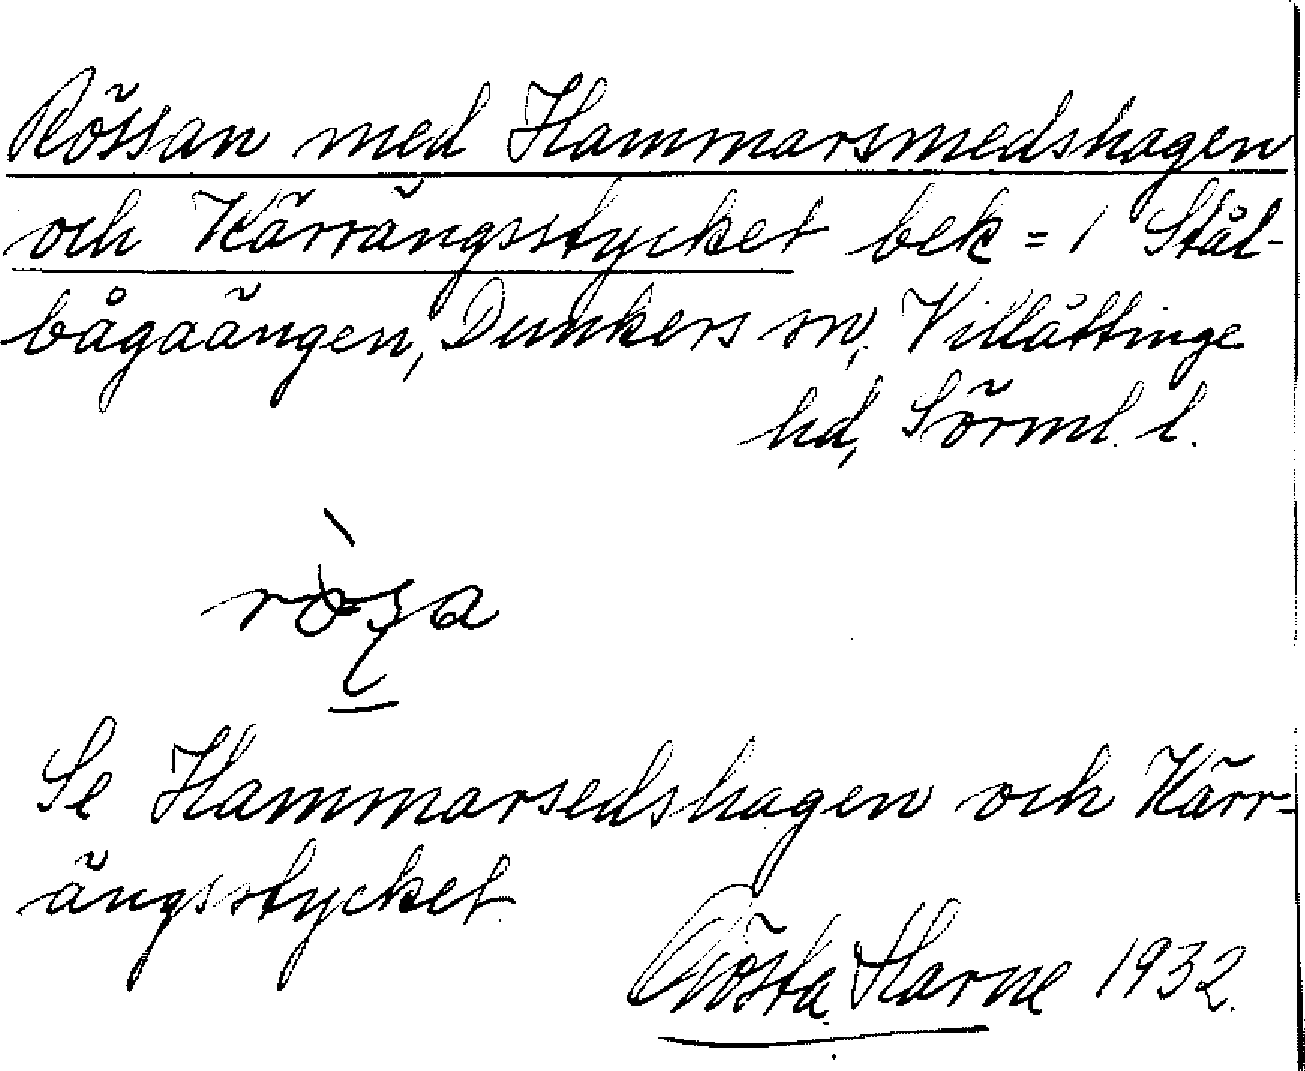 Rössan med Hammarsmedshagen
och Kärrängsstycket bek = 1 Stål-
bågaängen, Dunkers sn, Villåttinge
hd, Sörml. l.
Se Hammarsedshagen och Kärr-
ängsstycket.
Gösta Harne 1932.